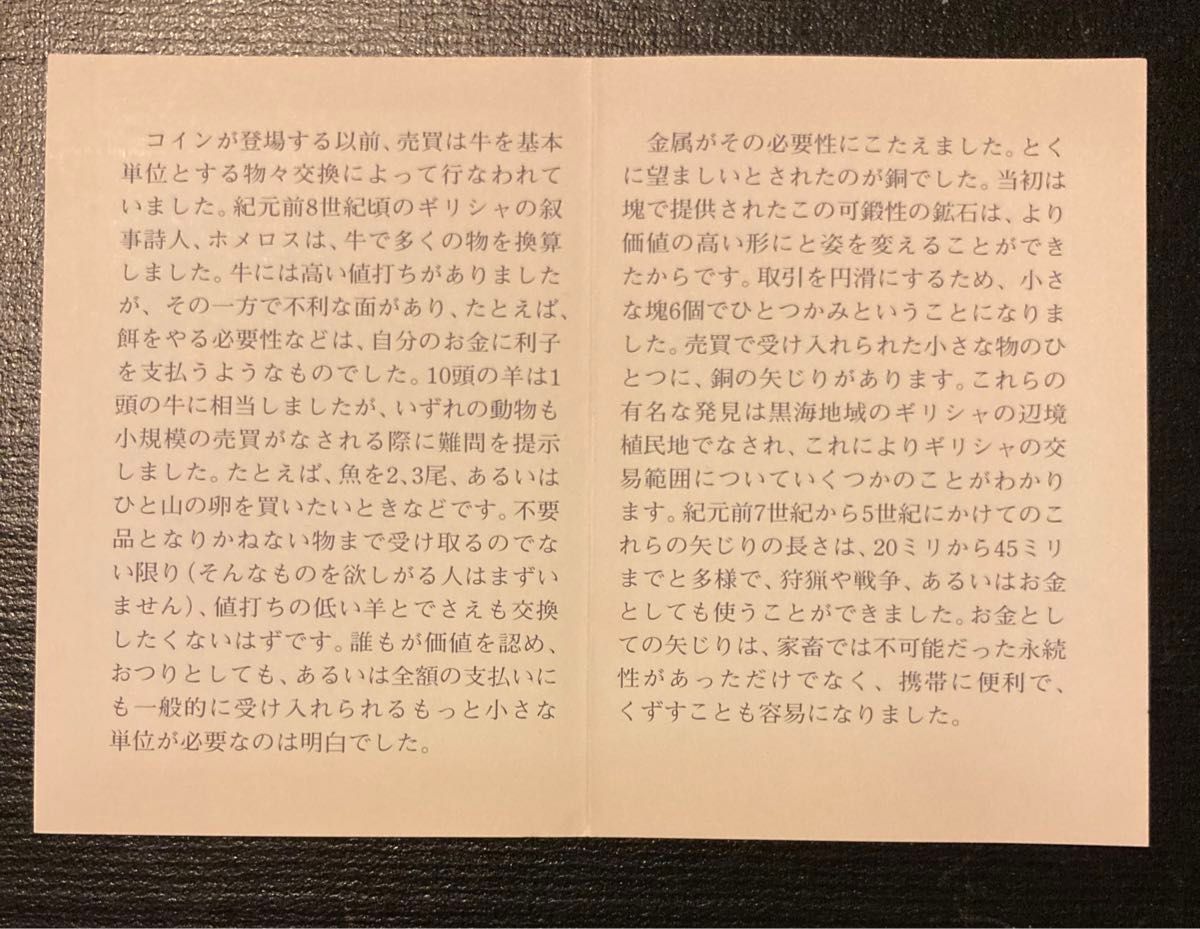 コインが登場する以前、売買は牛を基本
単位とする物々交換によって行なわれて
いました。紀元前8世紀頃のギリシャの叙
事詩人、ホメロスは、牛で多くの物を換算
しました。牛には高い値打ちがありました
が、その一方で不利な面があり、たとえば、
餌をやる必要性などは、自分のお金に利子
を支払うようなものでした。10頭の羊は1
頭の牛に相当しましたが、いずれの動物も
小規模の売買がなされる際に難問を提示
しました。たとえば、魚を2、3尾、あるいは
ひと山の卵を買いたいときなどです。不要
品となりかねない物まで受け取るのでな
い限り(そんなものを欲しがる人はまずい
ません)、値打ちの低い羊とでさえも交換
したくないはずです。誰もが価値を認め、
おつりとしても、あるいは全額の支払いに
も一般的に受け入れられるもっと小さな
単位が必要なのは明白でした。
金属がその必要性にこたえました。とく
に望ましいとされたのが銅でした。当初は
塊で提供されたこの可鍛性の鉱石は、より
価値の高い形にと姿を変えることができ
たからです。取引を円滑にするため、小さ
な塊6個でひとつかみということになりま
した。売買で受け入れられた小さな物のひ
とつに、銅の矢じりがあります。これらの
有名な発見は黒海地域のギリシャの辺境
植民地でなされ、これによりギリシャの交
易範囲についていくつかのことがわかり
ます。紀元前7世紀から5世紀にかけてのこ
れらの矢じりの長さは、20ミリから45ミリ
までと多様で、狩猟や戦争、あるいはお金
としても使うことができました。お金とし
ての矢じりは、家畜では不可能だった永続
性があっただけでなく、携帯に便利で、
くずすことも容易になりました。